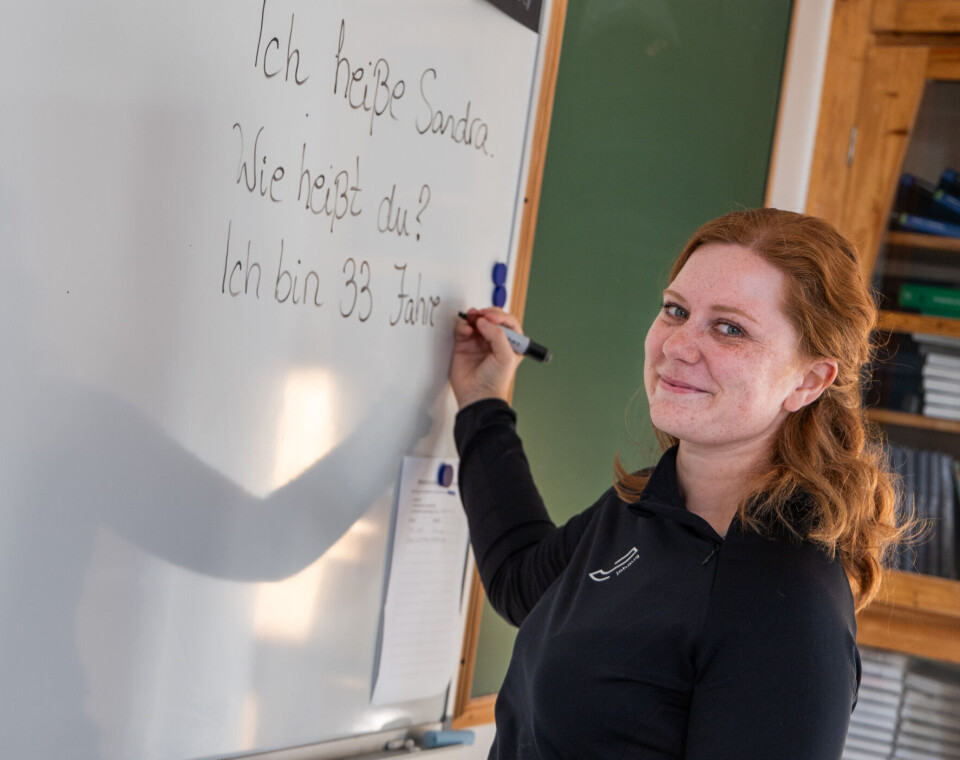 Ich heiße Sandra.
Wie heißt du?
Ich bin 33 Jahre